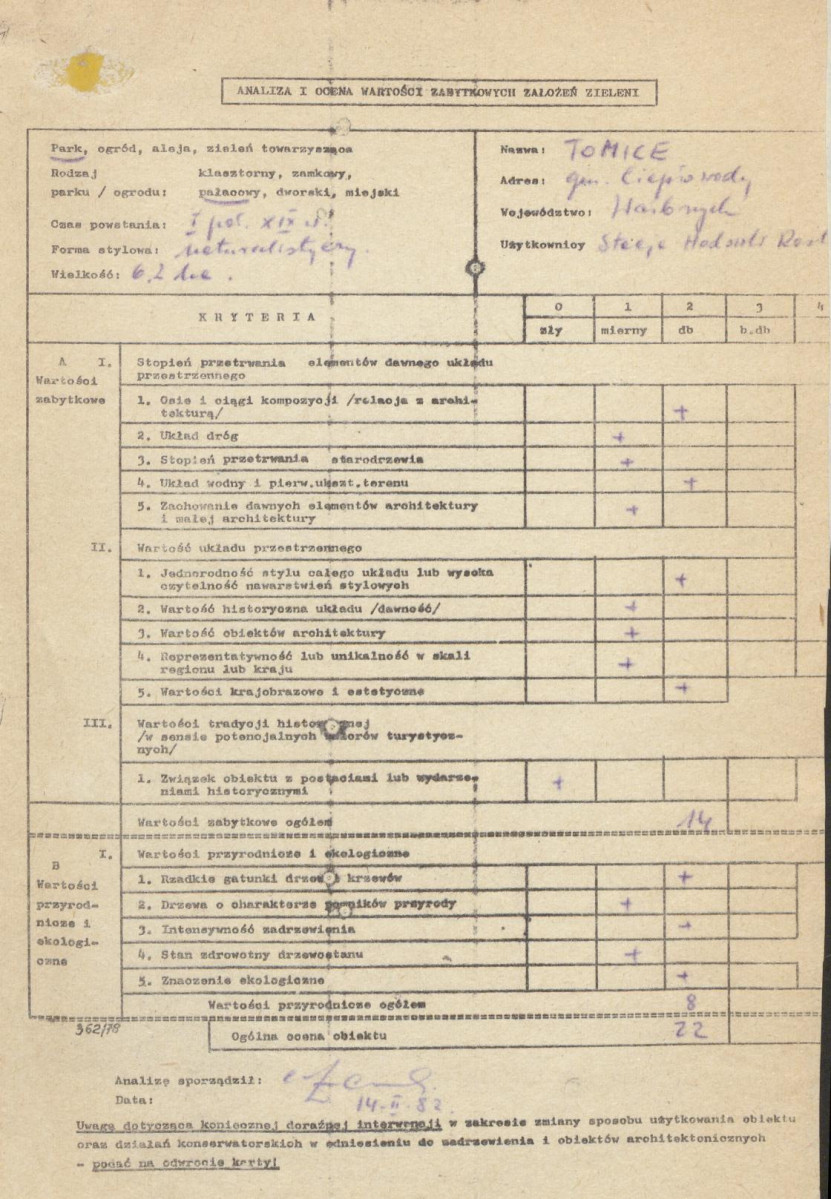 ANALIZA I OCENA WARTOŚCI ZABYTKOWYCH ZAŁOŻEŃ ZIELENI
Park, ogród, aleja, zieleń towarzysząca
Rodzaj klasztorny, zamkowy,
parku / ogrodu: pałacowy, dworski, miejski
Czas powstania: I poł. XIX w.
Forma stylowa: naturalistyczny.
Wielkość: 6,2 ha.
Nazwa: TOMICE
Adres: gm. Ciepłowody
Województwo: Wałbrzych
Użytkownicy Stacja Hodowli Rośl
KRYTERIA
0 1 2 3 4
zły mierny db b.db
A I. Stopień przetrwania elementów dawnego układu
Wartości przestrzennego
zabytkowe
1. Osie i ciągi kompozycji /relacja z archi-
tekturą/ +
2. Układ dróg +
3. Stopień przetrwania starodrzewia +
4. Układ wodny i pierw.ukszt.terenu +
5. Zachowanie dawnych elementów architektury
i małej architektury +
II. Wartość układu przestrzennego
1. Jednorodność stylu całego układu lub wysoka
czytelność nawarstwień stylowych +
2. Wartość historyczna układu /dawność/ +
3. Wartość obiektów architektury +
4. Reprezentatywność lub unikalność w skali
regionu lub kraju +
5. Wartości krajobrazowe i estetyczne +
III. Wartości tradycji historycznej
/w sensie potencjalnych walorów turystycz-
nych/
1. Związek obiektu z postaciami lub wydarze-
niami historycznymi +
Wartości zabytkowe ogółem 14
I. Wartości przyrodnicze i ekologiczne
B
Wartości
przyrod-
nicze i
ekologi-
czne
1. Rzadkie gatunki drzew i krzewów +
2. Drzewa o charakterze pomników przyrody +
3. Intensywność zadrzewienia +
4. Stan zdrowotny drzewostanu +
5. Znaczenie ekologiczne +
Wartości przyrodnicze ogółem 8
362/78
Ogólna ocena obiektu 22
Analizę sporządził:
Data: 14.II.82
Uwagę dotyczącą koniecznej doraźnej interwencji w zakresie zmiany sposobu użytkowania obiektu
oraz działań konserwatorskich w odniesieniu do zadrzewienia i obiektów architektonicznych
- podać na odwrocie karty!